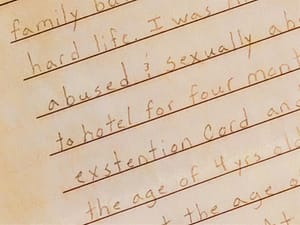 family ba
hard life. I was
abused & sexually ab
to hotel for four mont
exstention Cord an
the age of 4 yrs old
the age o